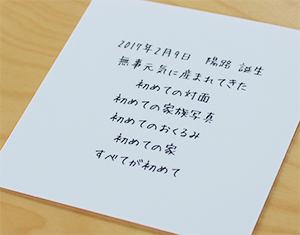 2017年2月9日 陽路 誕生
無事元気に産まれてきた
初めての対面
初めての家族写真
初めてのおくるみ
初めての家
すべてが初めて